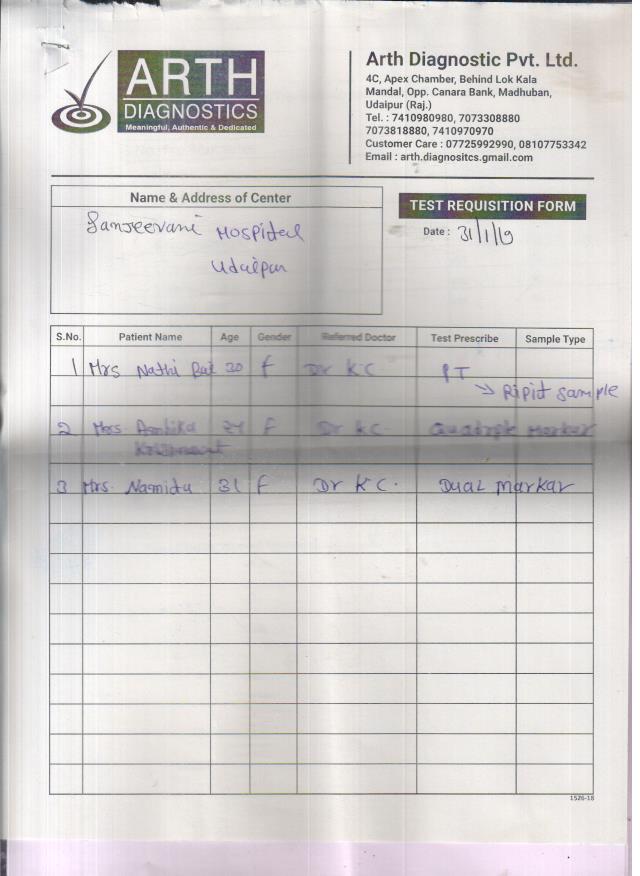 ARTH
DIAGNOSTICS
Meaningful, Authentic & Dedicated
Arth Diagnostic Pvt. Ltd.
4C, Apex Chamber, Behind Lok Kala
Mandal, Opp. Canara Bank, Madhuban,
Udaipur (Raj.)
Tel. : 7410980980, 7073308880
7073818880, 7410970970
Customer Care : 07725992990, 08107753342
Email : arth.diagnositcs.gmail.com
Name & Address of Center
Sanjeevani Hospital
Udaipur
TEST REQUISITION FORM
Date : 31/1/19
S.No. Patient Name Age Gender Referred Doctor Test Prescribe Sample Type
1 Mrs Nathi Bai 30 f Dr KC PT
→ Ripit sample
2 Mrs F Dr KC Marker
3 Mrs. Namita 31 f Dr KC. Dual Markar
1526-18